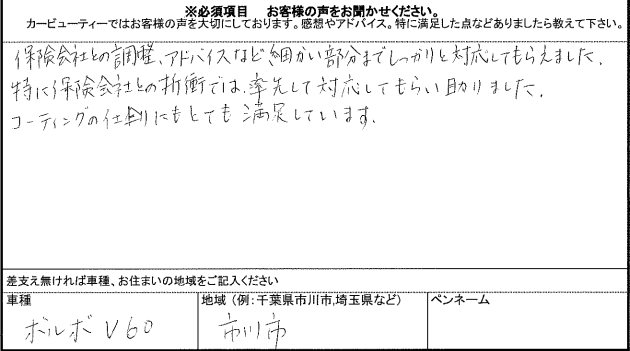 ※必須項目　お客様の声をお聞かせください。
カービューティーではお客様の声を大切にしております。感想やアドバイス。特に満足した点などありましたら教えて下さい。
保険会社との調整、アドバイスなど細かい部分までしっかりと対応してもらえました。
特に保険会社との折衝では、率先して対応してもらい助りました。
コーティングの仕上りにもとても満足しています。
差支え無ければ車種、お住まいの地域をご記入ください
車種
地域（例：千葉県市川市,埼玉県など）
ペンネーム
ボルボ V60
市川市